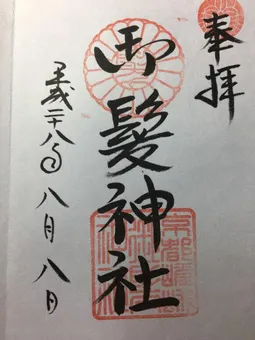 奉拝
御髪神社
平成二十八年八月八日
京都嵯峨